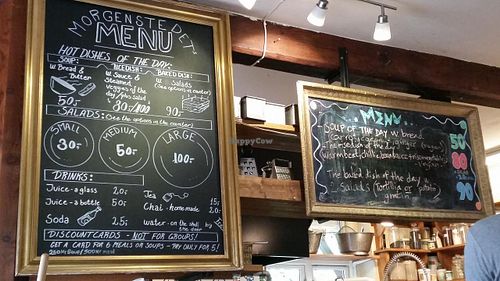 MORGENSTEDET'S
MENU
HOT DISHES OF THE DAY:
SOUP:
W Bread &
Butter
50.-
RICEDISH:
W Sauce &
Steamed
veggies of the
day/plus salad
80.-/100.-
BAKED DISH:
W Salads
(See options in counter)
90.-
SALADS: (See the options in the counter)
SMALL
30.-
MEDIUM
50.-
LARGE
100.-
DRINKS:
Juice - a glass 20.-
Juice - a bottle 50.-
Soda 25.-
Tea 15.-
Chai - home made 20.-
water - on the shelf by
the door
DISCOUNTCARDS - NOT FOR GROUPS!
GET A CARD FOR 6 MEALS OR SOUPS - PAY ONLY FOR 5!
HappyCow
MENU
SOUP OF THE DAY w. bread 50
(carrot/ginger)
The ricedish of the day 80
The baked dish of the day
+ Salads (Tortilla or potato) 90
gratin